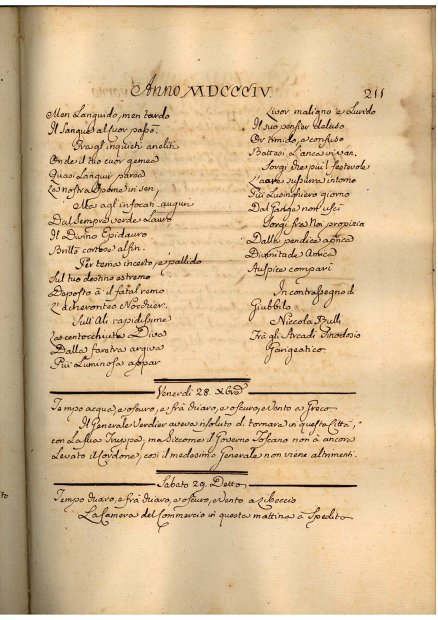 Anno MDCCCIV.
211
Men Languido, men tardo
Il Sangue al cuor passò.
Fra gl'inquieti aneliti
Onde il tuo cuor gemea
Quasi Languir parea
La nostra Speme in sen,
Ma agl'infocati auguri
Dal Sempre verde Lauro
Il Divino Epidauro
Brillò cortese alfin.
Per tema incerto, e pallido
Sul tuo destino estremo
Deposto à il fatal remo
L'acherontèo Nocchier.
Sull'Ali rapidissime
La centocchiuta Diva
Dalla faretra argiva
Più Luminosa appar
Livor maligno e Lurido
Il suo pensier deluso
Or timido, e confuso
Battesi L'anca in van.
Sorgi Dre più festevole
L'aure susurra intorno
Più Lusinghiero giorno
Dal Gange non uscì
Sorgi fra Noi propizia
Dalla pendice aprica
Divinitade Amica
Auspice compari
In contrassegno di
Giubbilo
Niccola Bulli
Frà gli Arcadi Tirodosio
Gorigeatico
Venerdì 28. Xbre
Tempo acqua, e oscuro, e frà chiaro, e oscuro, e Vento a Greco
Il Generale Verdier aveva risoluto di tornara in questa Città,
con La sua Truppa, ma Siccome il Governo Toscano non à ancora
Levato il Cordone, così il medesimo Generale non viene altrimenti.
Sabato 29. Detto
Tempo chiaro, e frà chiaro, e oscuro, e Vento a Libeccio
La Camera del Commercio in questa mattina à Spedito